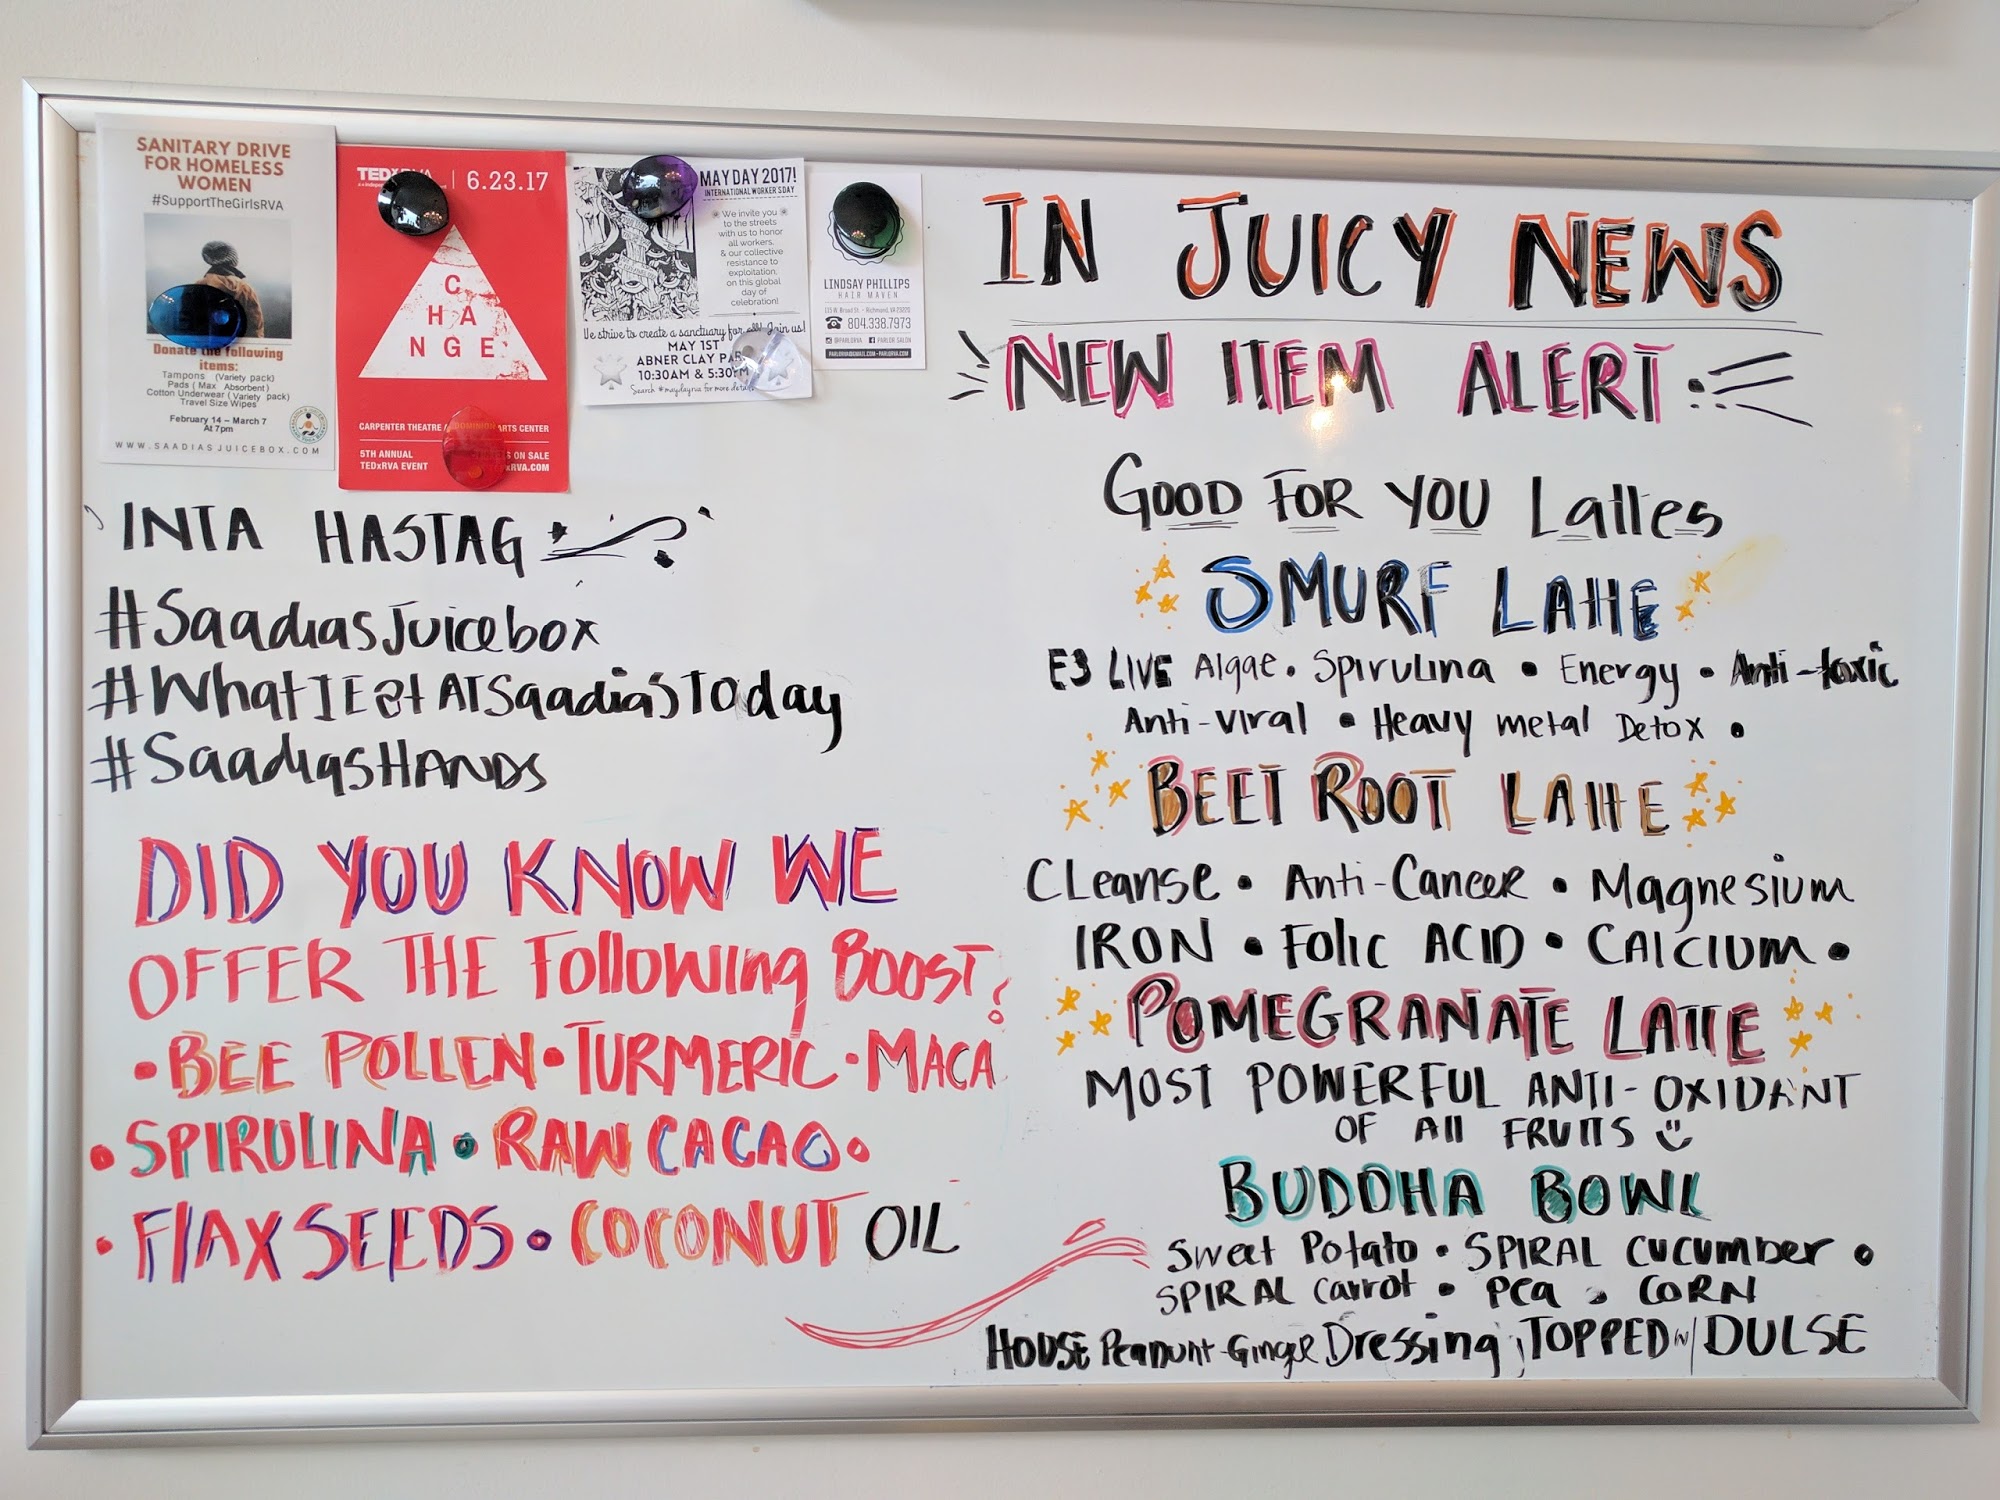 SANITARY DRIVE
FOR HOMELESS
WOMEN
#SupportTheGirlsRVA
Donate the following
items:
Tampons (Variety pack)
Pads ( Max Absorbent )
Cotton Underwear ( Variety pack)
Travel Size Wipes
February 14 – March 7
At 7pm
WWW.SAADIASJUICEBOX.COM
TEDxRVA | 6.23.17
C
H A
N G E
CARPENTER THEATRE DOMINION ARTS CENTER
5TH ANNUAL
TEDxRVA EVENT
ON SALE
xRVA.COM
MAYDAY 2017!
INTERNATIONAL WORKER'S DAY
We invite you
to the streets
with us to honor
all workers,
& our collective
resistance to
exploitation,
on this global
day of
celebration!
We strive to create a sanctuary for all! Join us!
MAY 1ST
ABNER CLAY PARK
10:30AM & 5:30PM
Search #maydayrva for more
LINDSAY PHILLIPS
HAIR MAVEN
Richmond, VA 23220
804.338.7973
@PARLORVA PARLOR SALON
PARLORVA@GMAIL.COM - PARLORVA.COM
INTA HASTAG
#SaadiasJuicebox
#WhatIEatATSaadiasToday
#SaadiasHANDS
DID YOU KNOW WE
OFFER THE Following BOOST?
• BEE POLLEN • TURMERIC • MACA
• SPIRULINA • RAW CACAO •
• FlAX SEEDS • COCONUT OIL
IN JUICY NEWS
NEW ITEM ALERT
GOOD FOR YOU Lattes
SMURF LATTE
E3 LIVE Algae • Spirulina • Energy • Anti-toxic
Anti-viral • Heavy metal Detox •
BEET ROOT LATTE
CLeanse • Anti-Cancer • Magnesium
IRON • Folic ACID • CALCIUM •
POMEGRANATE LATTE
MOST POWERFUL ANTI-OXIDANT
OF All FRUITS
BUDDHA BOWL
Sweet Potato • SPIRAL CUCUMber •
SPIRAL Carrot • Pea • CORN
HOUSE Peanunt-Ginger Dressing, TOPPED w/ DULSE